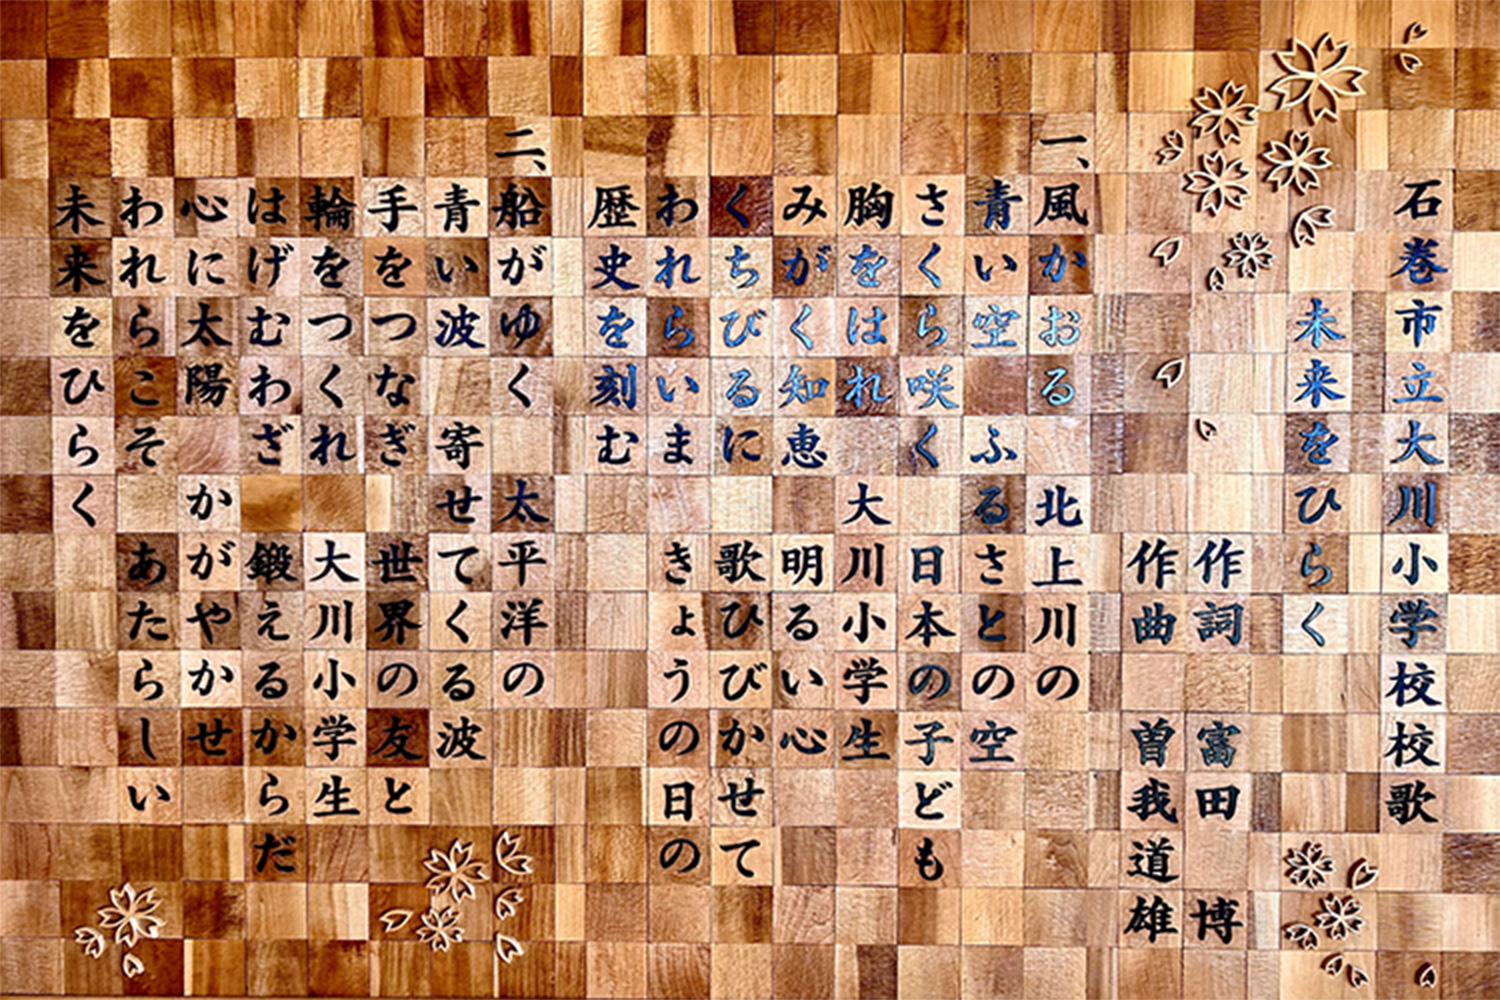 石巻市立大川小学校校歌
未来をひらく
作詞 富田 博
作曲 曽我道雄
一、
風かおる 北上川の
青い空 ふるさとの空
さくら咲く 日本の子ども
胸をはれ 大川小学生
みがく知恵 明るい心
くちびるに 歌ひびかせて
われらいま きょうの日の
歴史を刻む
二、
船がゆく 太平洋の
青い波 寄せてくる波
手をつなぎ 世界の友と
輪をつくれ 大川小学生
はげむわざ 鍛えるからだ
心に太陽 かがやかせ
われらこそ あたらしい
未来をひらく